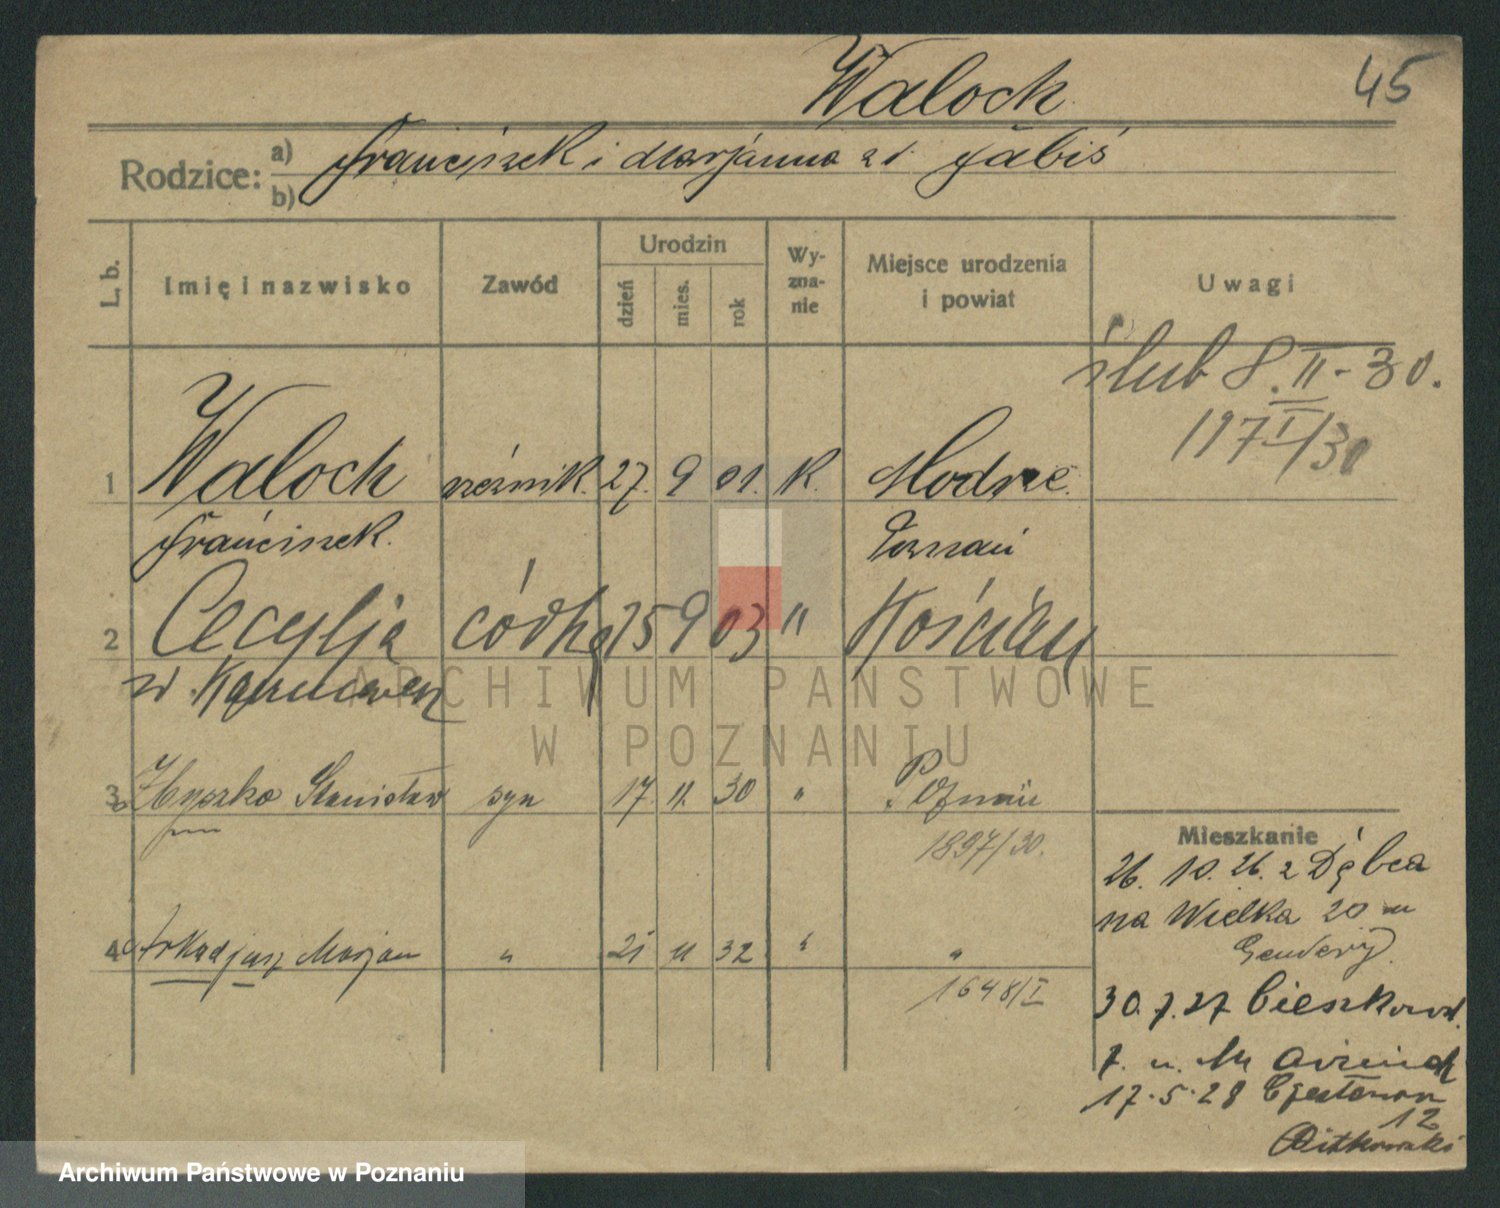 Waloch
45
Rodzice: a) Franciszek i Marjanna z d. Jabiś
b)
L. b. Imię i nazwisko Zawód Urodzin dzień mies. rok Wyznanie Miejsce urodzenia i powiat Uwagi
ślub 8.II-30.
197 I/30
1 Waloch rzeźnik. 27. 9 01. K. Modrze.
Franciszek. Poznań
2 Cecylja 25 9 03 " Kościan
w
3 Zbyszko Stanisław syn 17. 11. 30 " Poznań
1897/30.
Mieszkanie
26. 10. 26. z Dębca
4 Arkadjusz Marjan " 11 32 " "
na Wielka 20 u
1648/I
30. 7. 27 Cieszkows.
7. u.
17.5.28
12
Witkowski
ARCHIWUM PAŃSTWOWE
W POZNANIU
Archiwum Państwowe w Poznaniu